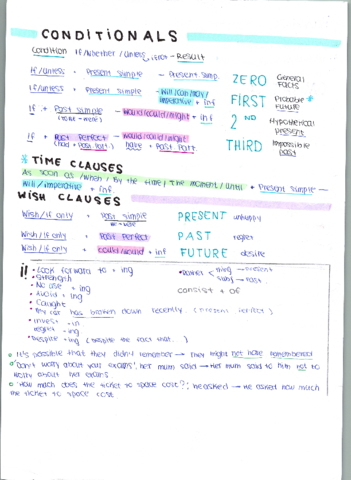 CONDITIONALS
Condition If/Whether/Unless, if not - Result
If/Unless + Present simple - Present simp. ZERO General Facts
If/unless + Present simple - Will/can/may/ imperative + inf FIRST Probable Future
If + Past simple - would/could/might + inf 2ND Hypothetical present
If + Past Perfect - would/could/might THIRD Impossible past
(had + past part) have + Past Part.
TIME CLAUSES
As soon as / When / By the time / The moment / Until + Present simple -
Will / imperative + inf
WISH CLAUSES
Wish/if only + Past simple PRESENT unhappy
Wish/if only + Past Perfect PAST regret
Wish/if only + could/would + inf FUTURE desire
• Look forward to + ing
consist + of
• No use + ing
• Avoid + ing
• Caught
• My car has broken down recently. (present perfect)
• Invest + in
regret + ing
• Despite + ing (despite the fact that...)
• It's possible that they didn't remember → They might not have remembered
• 'Don't worry about your exams', her mum said → Her mum said to him not to
worry about her exams
• 'How much does the ticket to space cost?', he asked → He asked how much
the ticket to space cost